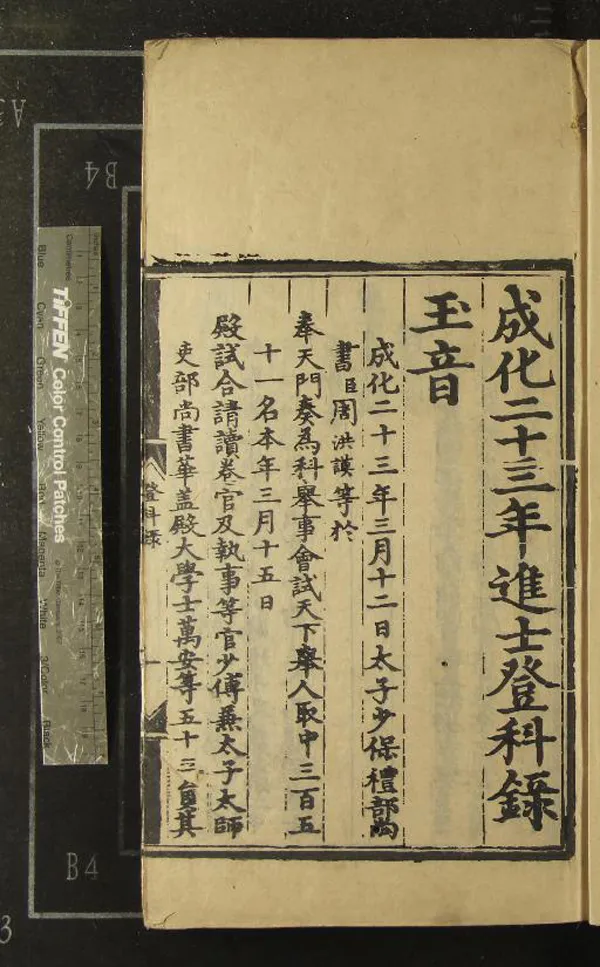 成化二十三年進士登科錄
玉音
成化二十三年三月十二日太子少保禮部尚
書臣周洪謨等於
奉天門奏為科舉事會試天下舉人取中三百五
十一名本年三月十五日
殿試合請讀卷官及執事等官少傅兼太子太師
吏部尚書華盖殿大學士萬安等五十三員其
登科錄
一
TIFFEN Color Control Patches
Centimetres
Blue
Cyan
Green
Yellow
Red
Magenta
White
3/Color
Black
B4
B4
A3
3